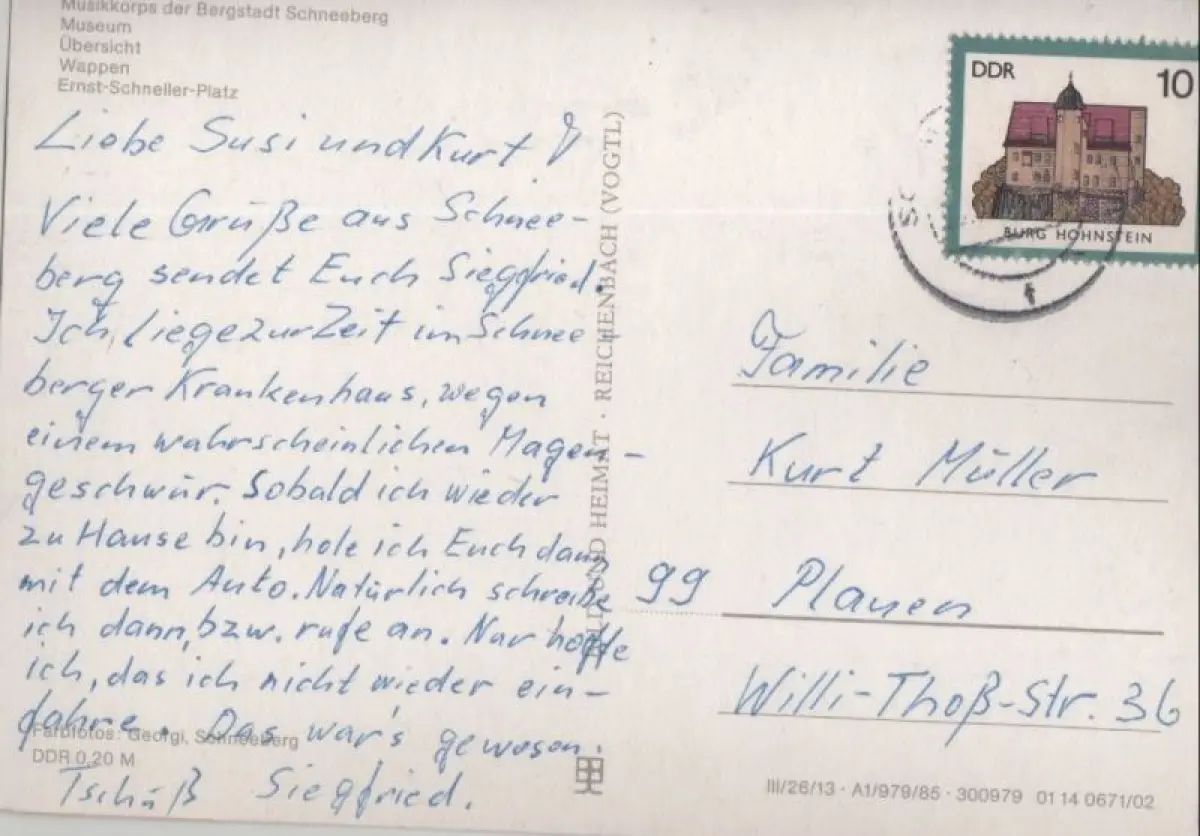 Musikkorps der Bergstadt Schneeberg
Museum
Übersicht
Wappen
Ernst-Schneller-Platz
Liebe Susi und Kurt!
Viele Grüße aus Schnee-
berg sendet Euch Siegfried.
Ich liege zur Zeit im Schnee
berger Krankenhaus, wegen
einem wahrscheinlichen Magen-
geschwür. Sobald ich wieder
zu Hause bin, hole ich Euch dann
mit dem Auto. Natürlich schreibe
ich dann, bzw. rufe an. Nur hoffe
ich, das ich nicht wieder ein-
fahre. Das war's gewesen.
Tschüß Siegfried.
Farbfotos: Georgi, Schneeberg
DDR 0,20 M
BILD UND HEIMAT · REICHENBACH (VOGTL)
DDR 10
BURG HOHNSTEIN
Familie
Kurt Müller
99 Plauen
Willi-Thoß-Str. 36
III/26/13 · A1/979/85 · 300979 01 14 0671/02